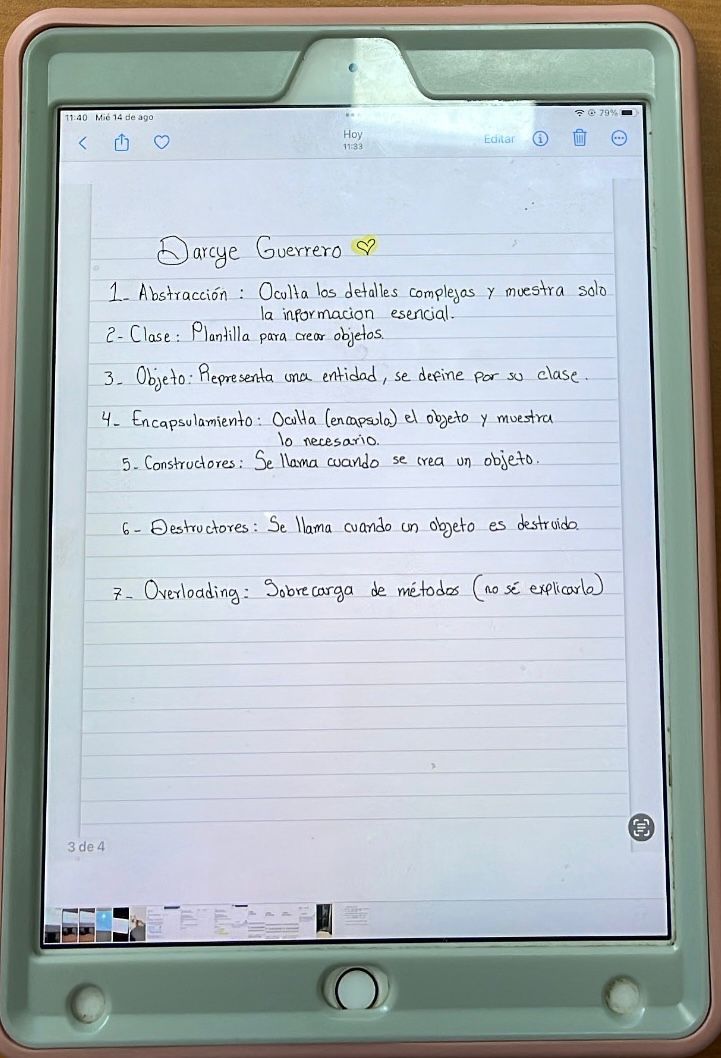 11:40 Mié 14 de ago
79%
Hoy
11:33
Editar
Darcye Guerrero
1- Abstracción : Oculta los detalles complejas y muestra solo
la informacion esencial.
2- Clase : Plantilla para crear objetos.
3- Objeto : Representa una entidad, se define por su clase.
4- Encapsulamiento : Oculta (encapsula) el objeto y muestra
lo necesario.
5- Constructores : Se llama cuando se crea un objeto.
6- Destructores : Se llama cuando un objeto es destruido.
7- Overloading : Sobrecarga de métodos (no sé explicarlo)
3 de 4